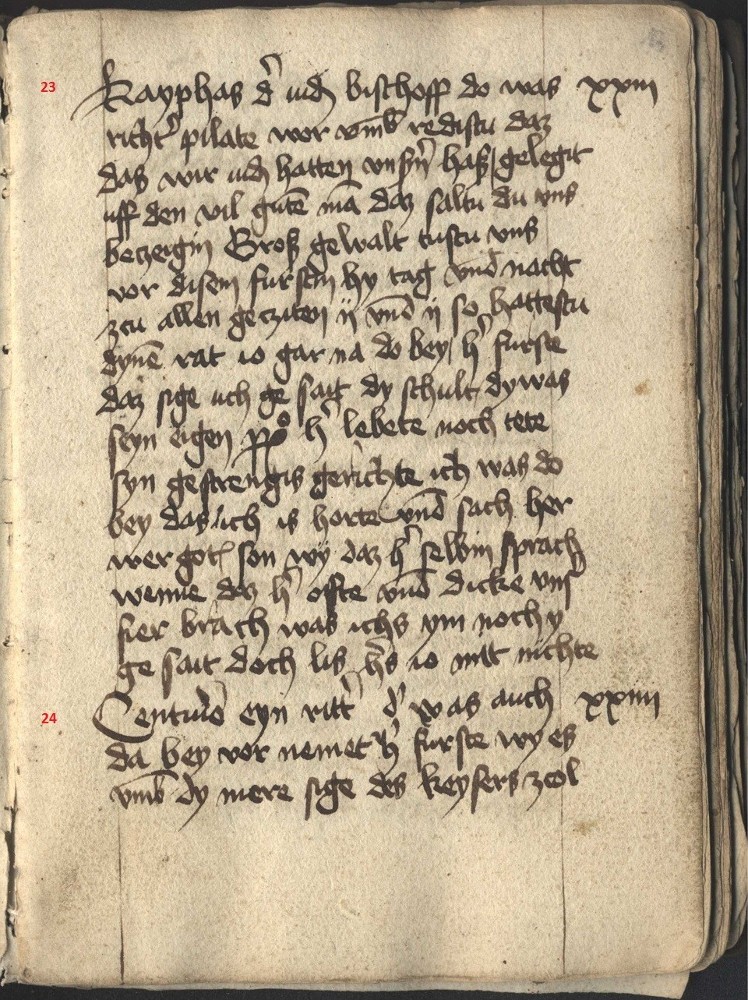 23
Kayphas d' iud bischoff do was xxiii
richt' pilate wor vmb redistu daz
das wir iud hatten vnsn haß gelegit
uff den vil gutē mā daz saltu du vns
betzeigin Groß gewalt tustu vns
vor disem fursten hy tag vnd nacht
zcu allen geczuten ij vnd ij so hattestu
dynē rat io gar na do bey h' furste
daz sige uch ge sait dy schult dy was
seyn eigen h' lebete noch tete
syn gestrengis gerichte ich was do
bey das ich is horte vnd sach her
wer got son wy daz h' selbin sprach
wenne daz h' ofte vnd dicke vns
fier brach was ichs ym noch y
ge sait doch lis h's io mit nichte
24
Centurio eyn ritt' d' was auch xxiiii
da bey vor nemet h' furste wy es
vmb dy mere sige des keysers zcol